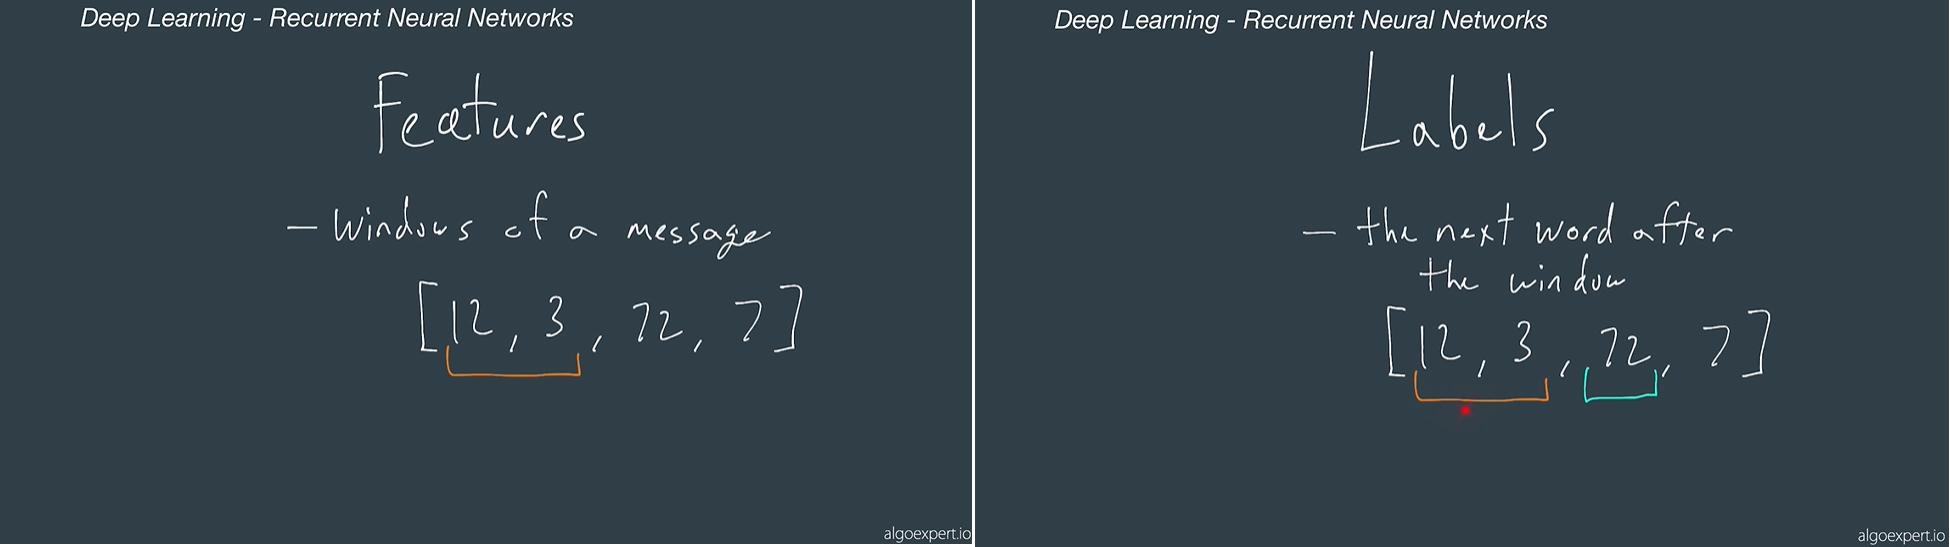 Deep Learning - Recurrent Neural Networks
Features
- Windows of a message
[12, 3, 72, 7]
algoexpert.io
Deep Learning - Recurrent Neural Networks
Labels
- the next word after
the window
[12, 3, 72, 7]
algoexpert.io